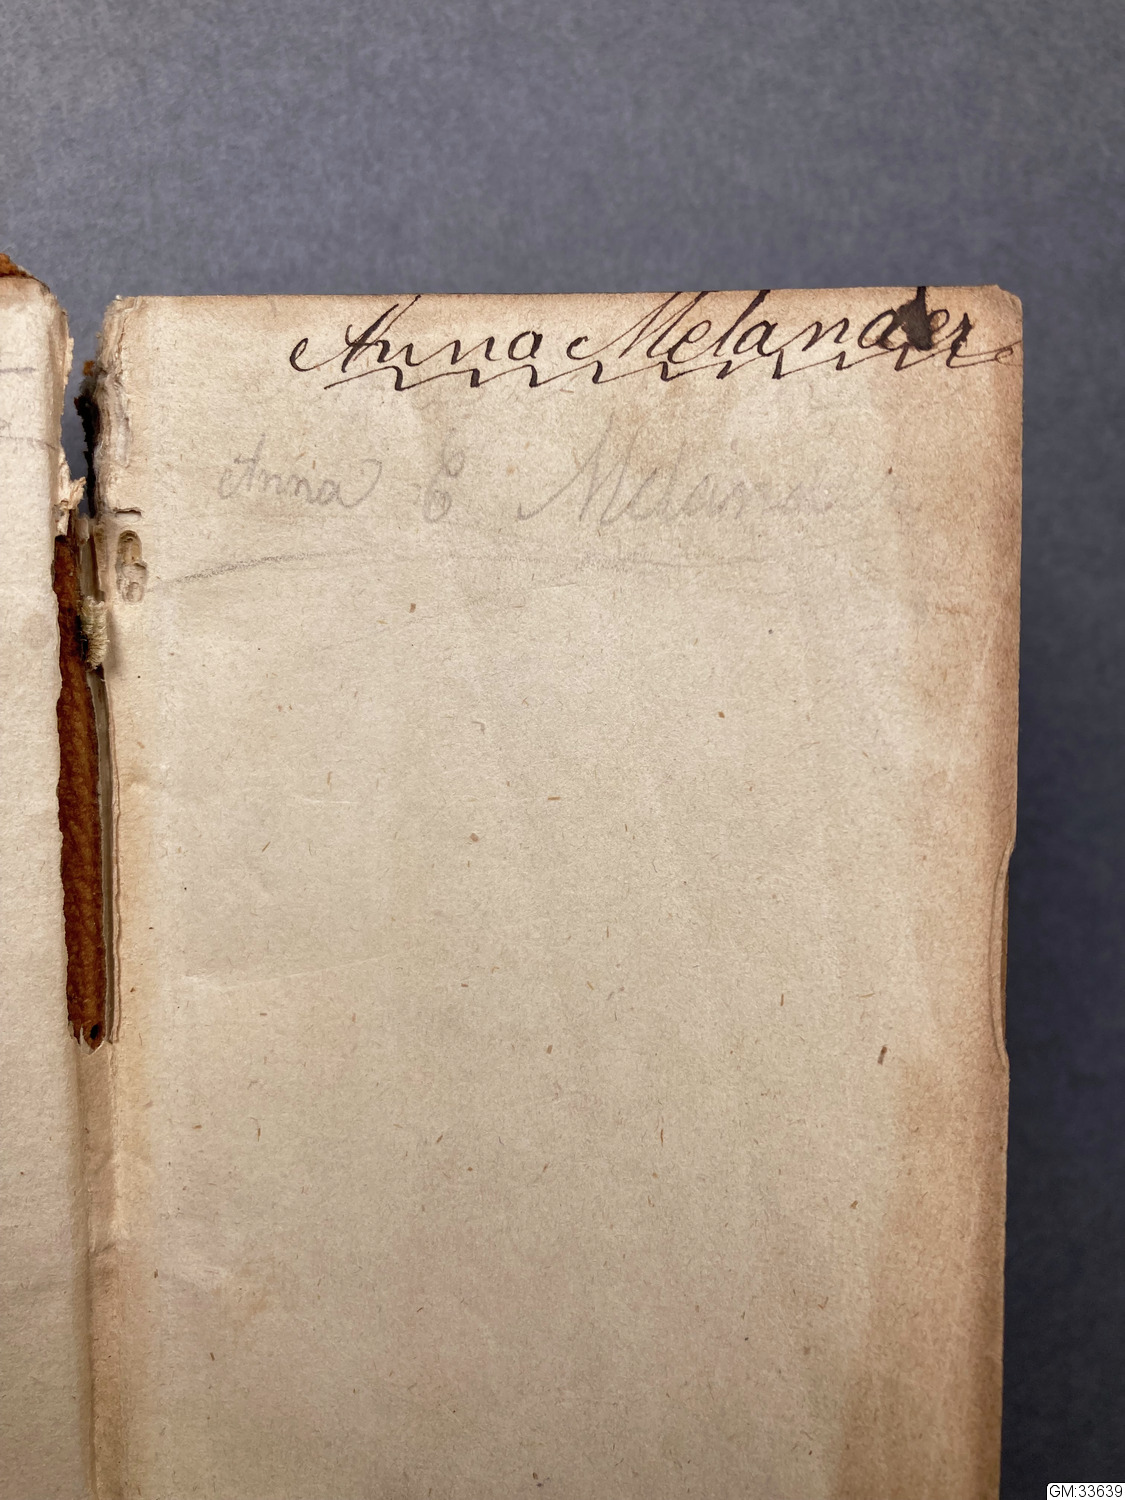 Anna Melander
Anna E Melander
GM:33639